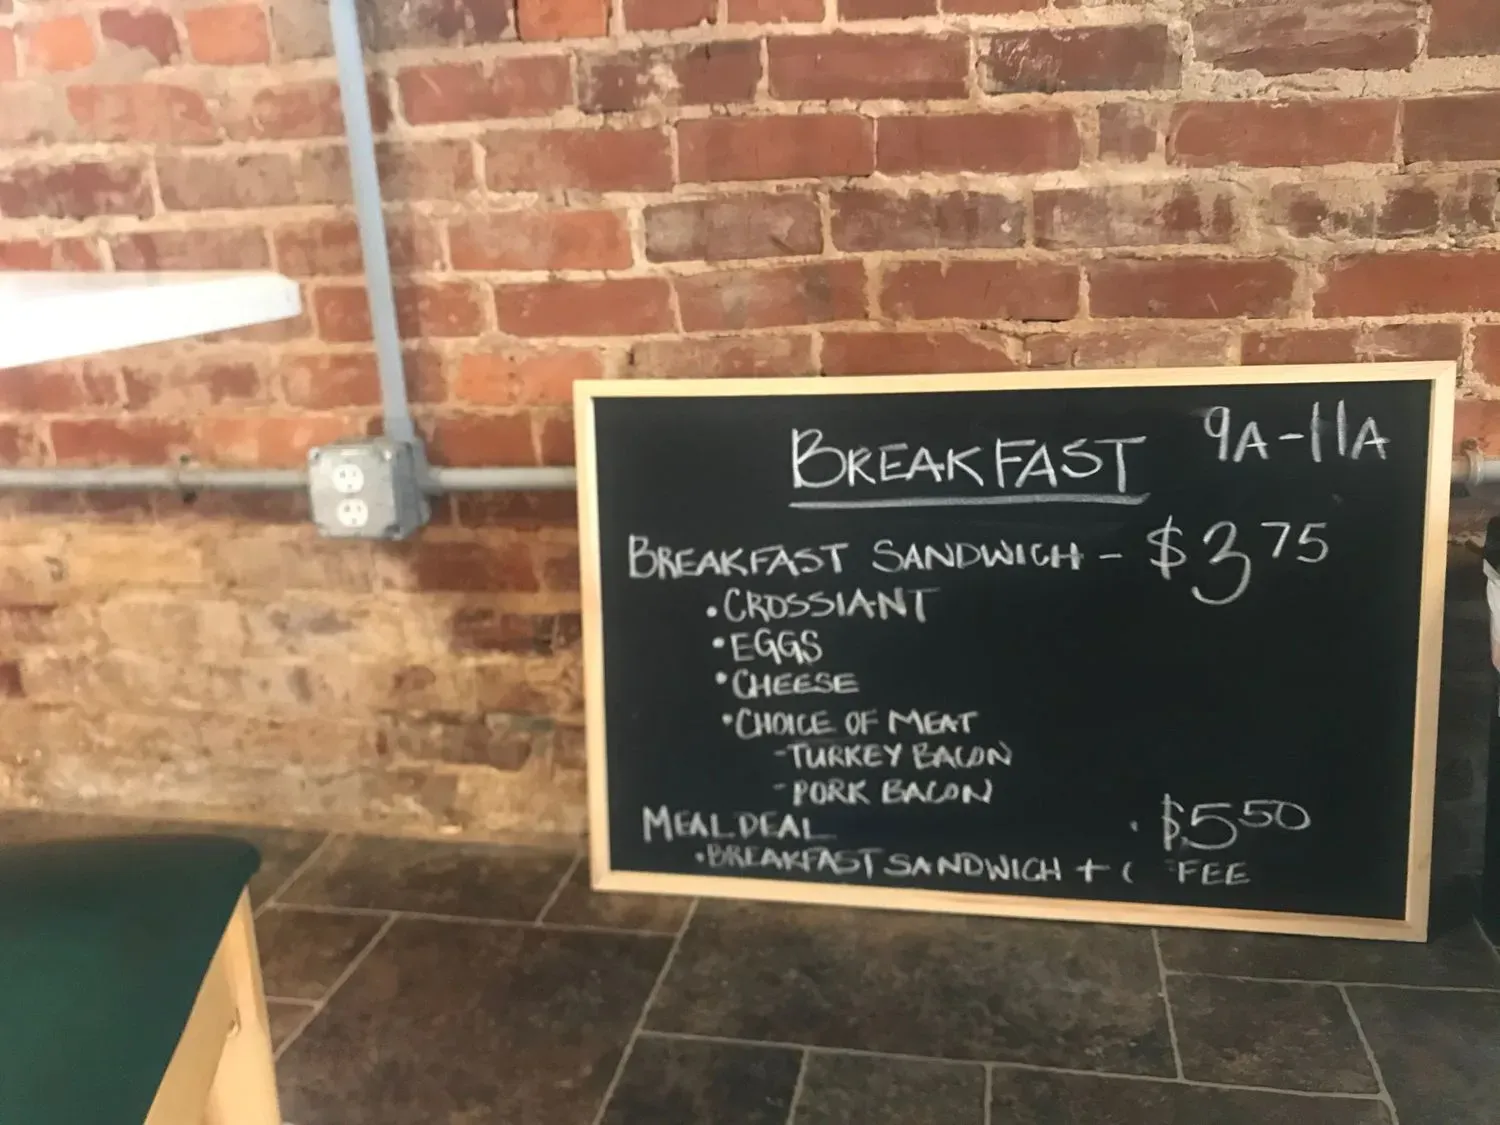 BREAKFAST 9A-11A
BREAKFAST SANDWICH - $3.75
• CROSSIANT
• EGGS
• CHEESE
• CHOICE OF MEAT
- TURKEY BACON
- PORK BACON
MEAL DEAL $5.50
• BREAKFAST SANDWICH + C FEE